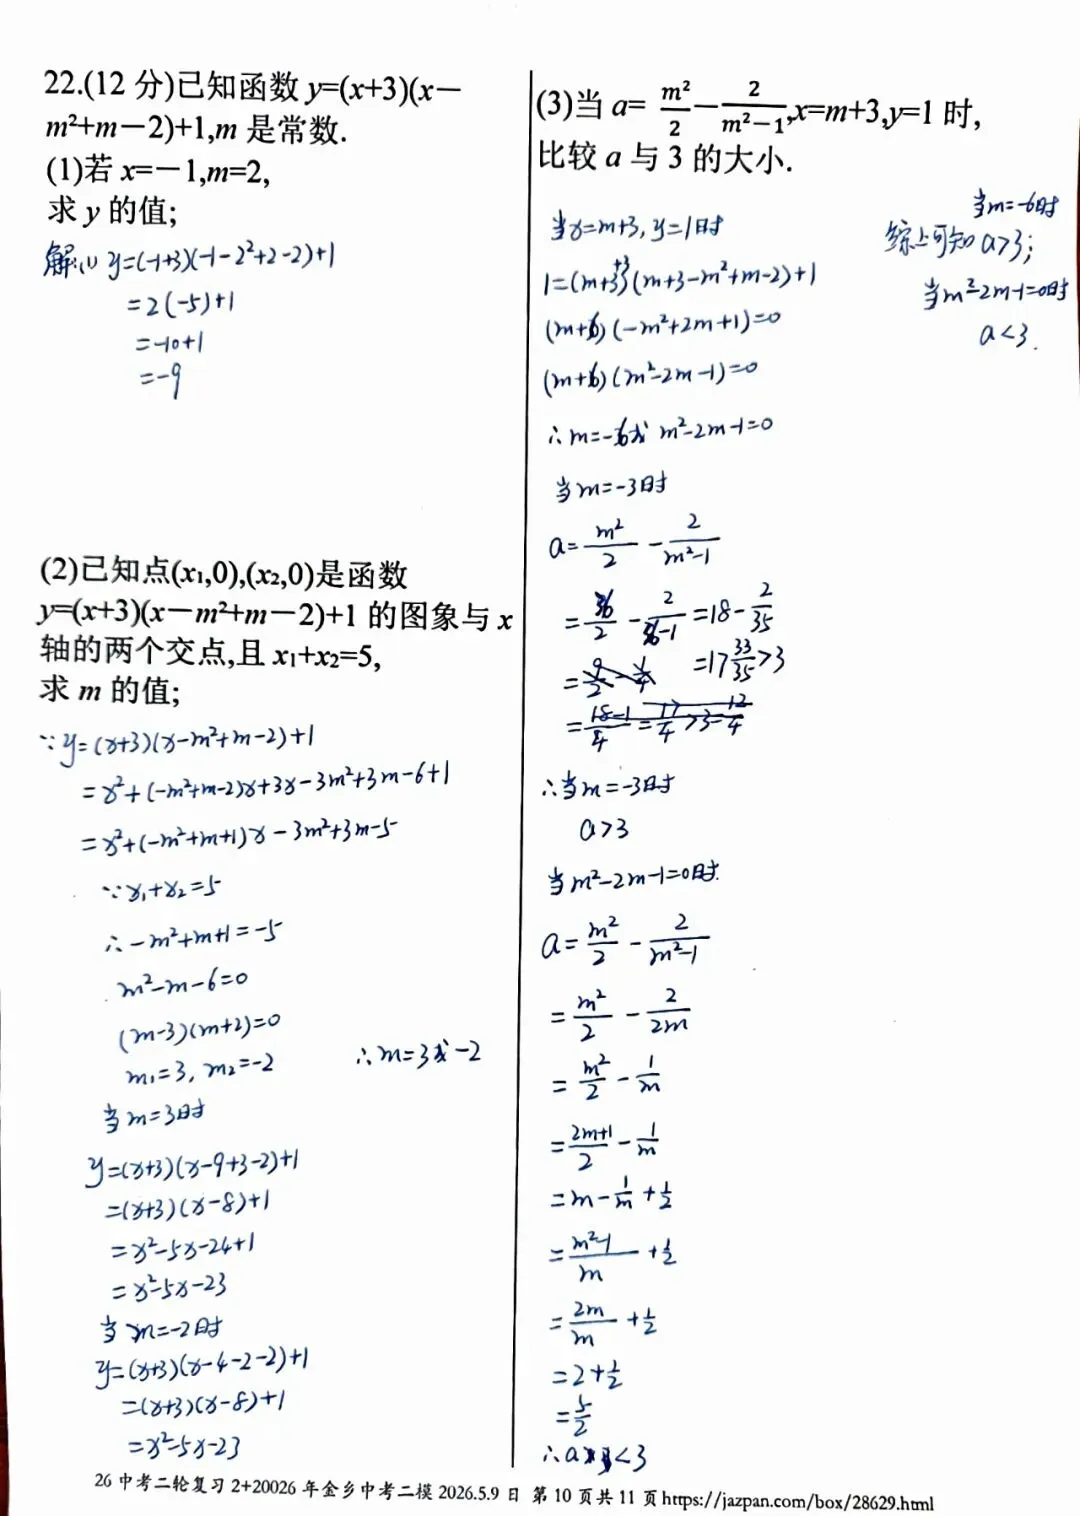 22.(12 分)已知函数 y=(x+3)(x－
m²+m－2)+1,m 是常数.
(1)若 x=－1,m=2,
求 y 的值;
解:(1) y=(-1+3)(-1-2²+2-2)+1
=2(-5)+1
=-10+1
=-9
(2)已知点(x₁,0),(x₂,0)是函数
y=(x+3)(x－m²+m－2)+1 的图象与 x
轴的两个交点,且 x₁+x₂=5,
求 m 的值;
∵y=(x+3)(x-m²+m-2)+1
=x²+(-m²+m-2)x+3x-3m²+3m-6+1
=x²+(-m²+m+1)x-3m²+3m-5
∵x₁+x₂=5
∴-m²+m+1=-5
m²-m-6=0
(m-3)(m+2)=0
m₁=3, m₂=-2
∴m=3或-2
当m=3时
y=(x+3)(x-9+3-2)+1
=(x+3)(x-8)+1
=x²-5x-24+1
=x²-5x-23
当m=-2时
y=(x+3)(x-4-2-2)+1
=(x+3)(x-8)+1
=x²-5x-23
(3)当 a= m²/2－2/(m²－1),x=m+3,y=1 时,
比较 a 与 3 的大小.
当x=m+3, y=1时
1=(m+3+3)(m+3-m²+m-2)+1
(m+6)(-m²+2m+1)=0
(m+6)(m²-2m-1)=0
∴m=-6或 m²-2m-1=0
当m=-3时
a=m²/2-2/(m²-1)
=36/2-2/(36-1)=18-2/35
=9/2-1/4 =17 33/35>3
=(18-1)/4=17/4>3=12/4
∴当m=-3时
a>3
当m²-2m-1=0时
a=m²/2-2/(m²-1)
=m²/2-2/2m
=m²/2-1/m
=(2m+1)/2-1/m
=m-1/m+1/2
=(m²-1)/m+1/2
=2m/m+1/2
=2+1/2
=5/2
∴a<3
当m=-6时
综上可知 a>3;
当m²-2m-1=0时
a<3.
26 中考二轮复习 2+20026 年金乡中考二模 2026.5.9 日 第 10 页共 11 页 https://jazpan.com/box/28629.html